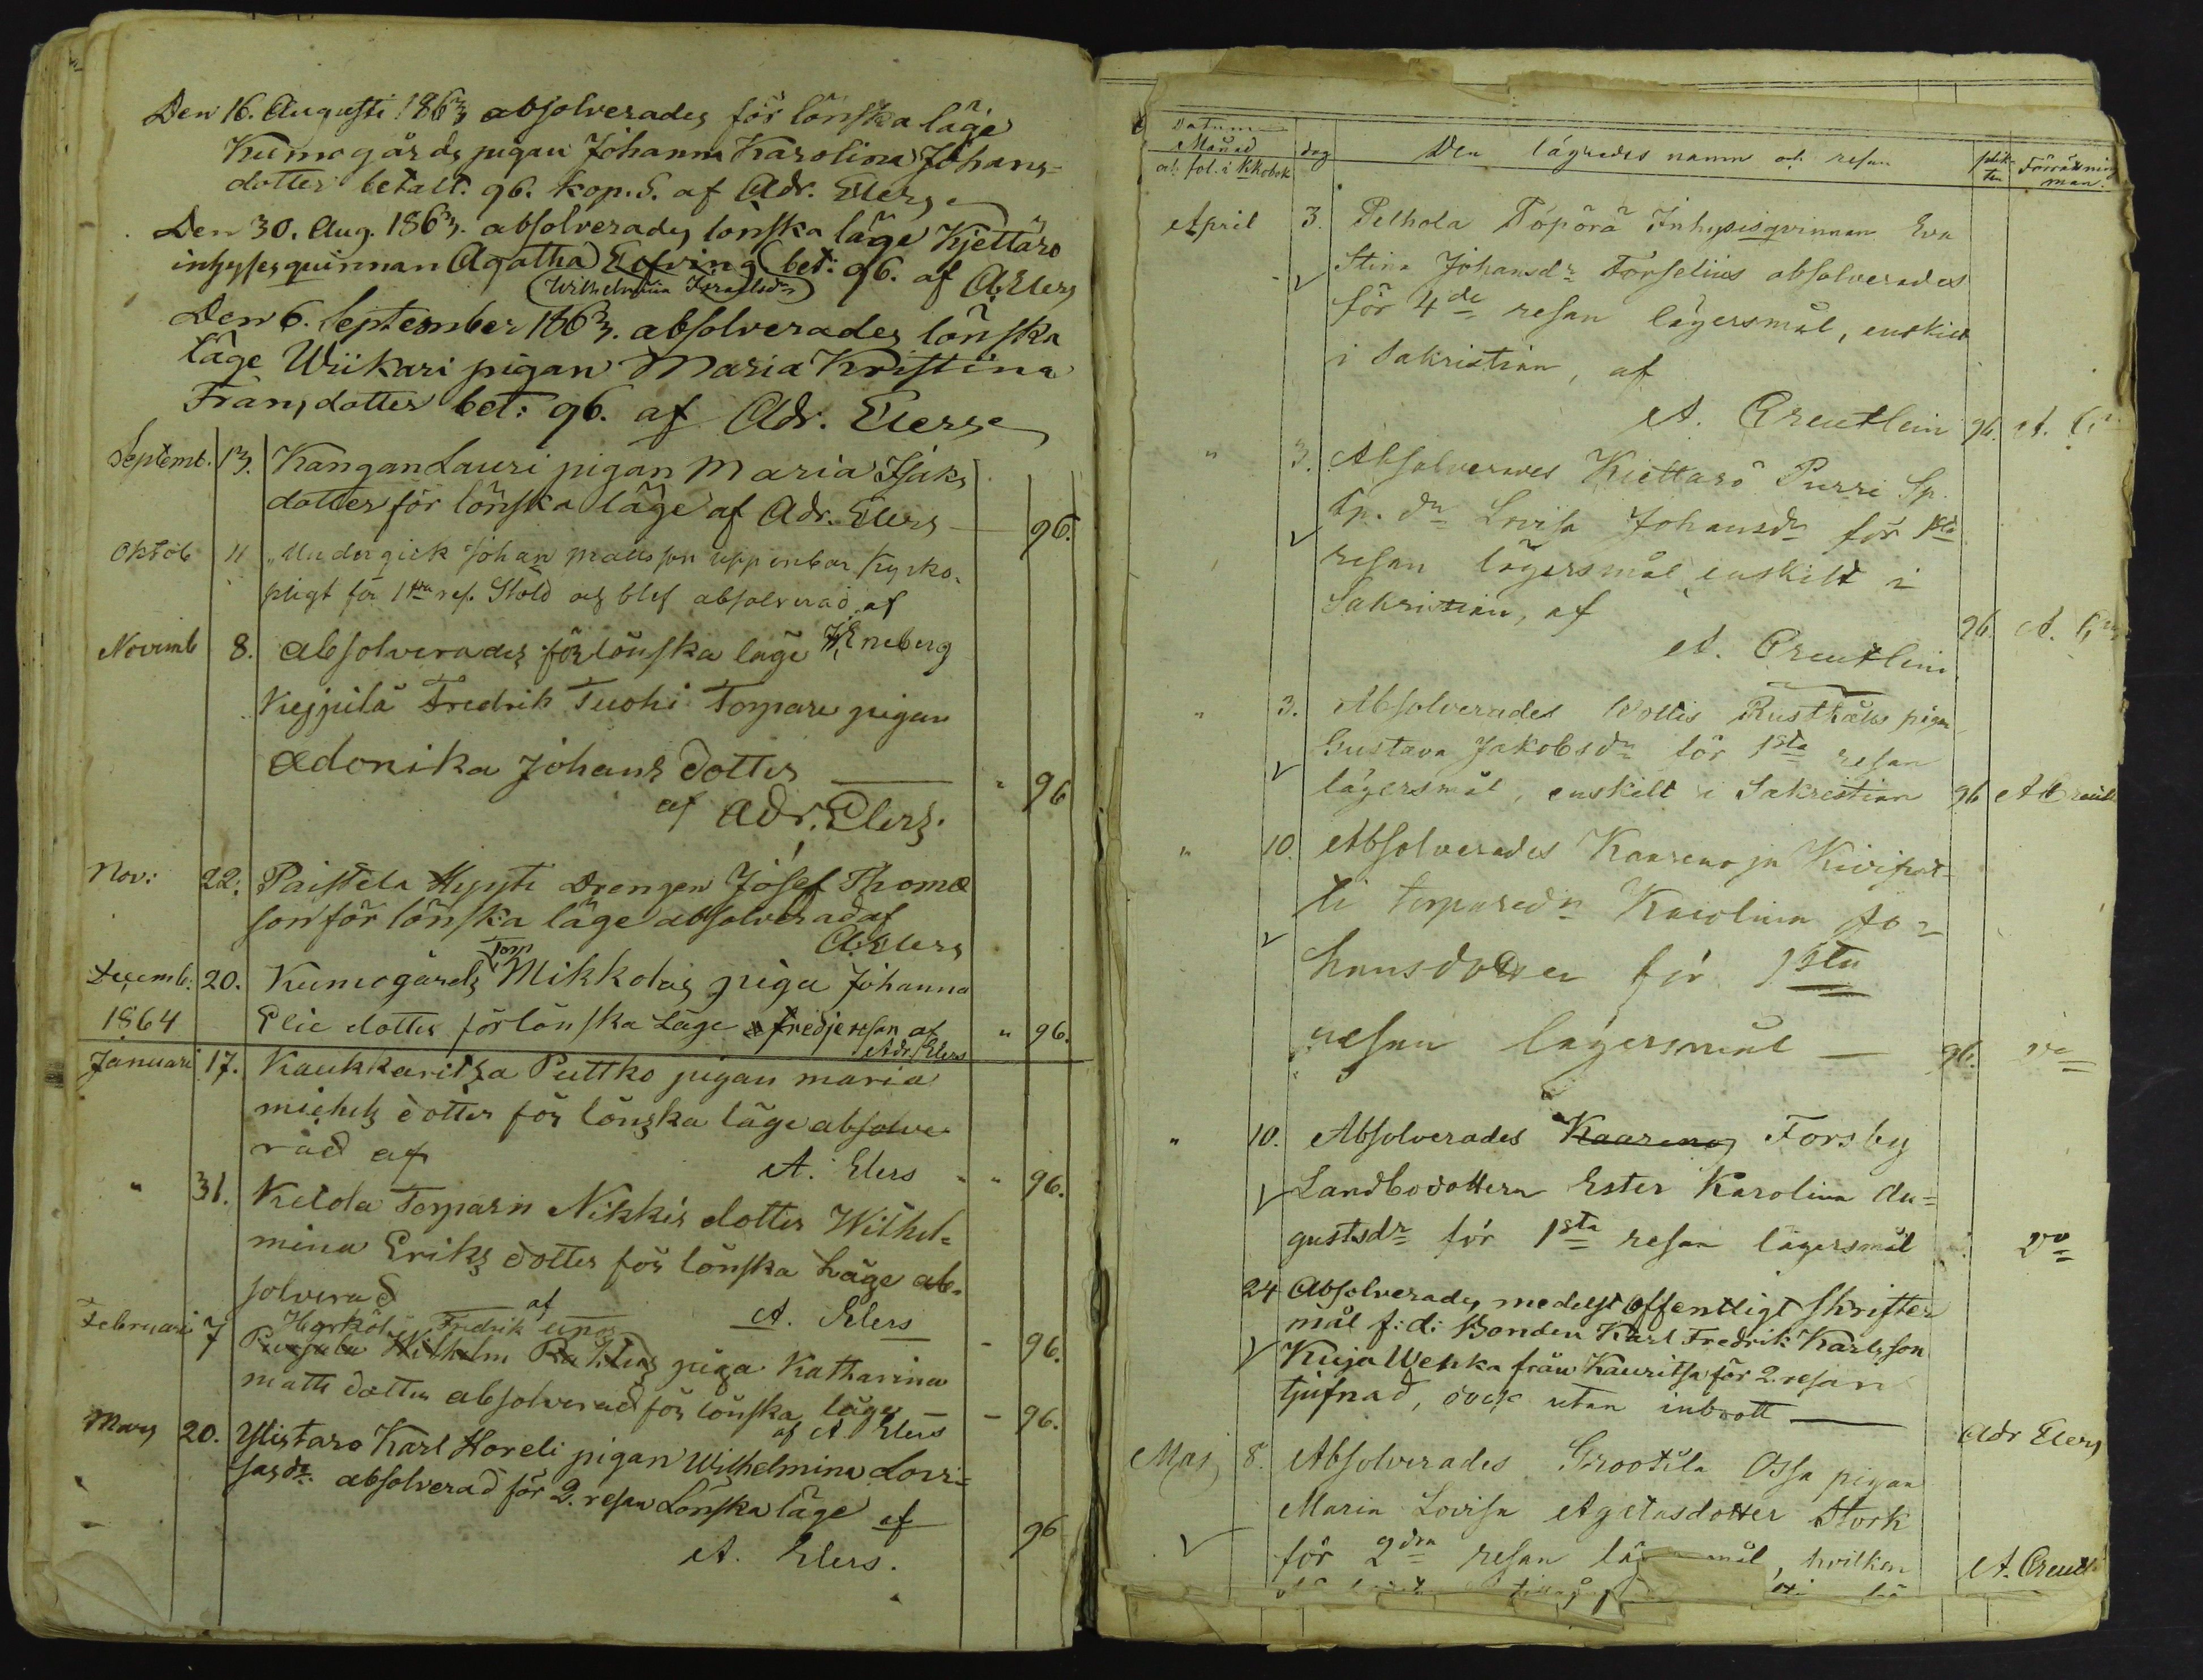 Den 16. Augusti 1863 absolverades för lönska läge
Kumogårds pigan Johanna Karolina Johans-
dotter betalt: 96. kop. S. af Adr. Elers
Den 30. Aug. 1863. absolverades lönska läge Kjettäro
inhyses quinnan Agatha Elfving bet: 96. af A. Elers
(Wilhelmina Israelsdr)
Den 6. September 1863. absolverades lönska
läge Wiikari pigan Maria Kristina
Fransdotter bet: 96. af Adr. Elers
Septemb. 13. Kangan Lauri pigan Maria Isaks
dotter för lönska läge af Adr. Elers 96.
Oktob 11 Undergick Johan Matts son uppenbar Kyrko-
pligt för 1sta res. Stöld och blef absolverad af
Eneberg
Novemb 8. absolverades för lönska läge
Kejpilä Fredrik Tuohi Torpare pigan
Adonika Johans dotter " 96
af Adr. Elers.
Nov: 22. Paistila Hyyti Drengen Josef Thomæ
son för lönska läge absolverad af
A. Elers
Decemb: 20. Kumogårds Torp Mikkolas piga Johanna
1864 Elie dotter för lönska Läge tredje resan af " 96.
Adr. Elers
Januari 17. Kaukkaritsa Puttko pigan Maria
Michels dotter för lönska läge absolve-
rad af A. Elers " " 96.
" 31. Kelola Torparn Nikkis dotter Wilhel-
mina Eriks dotter för lönska Läge ab-
solverad af A. Elers - 96.
Februari 7 Fredrik
Wilhelm piga Katharina
Matts dotter absolverad för lönska läge - 96.
af A. Elers
Mars 20. Ylistaro Karl Horeli pigan Wilhelmina Lovi-
sasdr. absolverad för 2. resan Lönska läge af 96
A. Elers.
Datum
Månad dag Den lägrades namn och resan plik- Förrättnings
och fol. i Kkobok ten man.
April 3. Pelhola Töpörä Inhysisqvinnan Eva
Stina Johansdr Forselius absolverades
för 4de resan lägersmål, enskildt
i Sakristian, af
A. Creutlein 96. A. C
" 3. Absolverades Kiettarö Purri Sp.
Tp. dr Lovisa Johansdr för 1sta
resan lägersmål enskilt i
Sakristian, af 96. A. C
A. Creutlein
" 3. Absolverades Wottis Rusthålls pigan
Gustava Jakobsdr för 1sta resan
lägersmål, enskilt i Sakristian 96 A Creutl
" 10. Absolverades Kaarenoja Kivipel-
ti torparedr Karolina Jo-
hansdotter för 1sta
resan lägersmål — 96. Do
" 10. Absolverades Kaareno Forsby
Landbodottern Ester Karolina Au-
gustsdr för 1sta resan lägersmål Do
24 Absolverades medelst offentligt Skrifter
mål f: d: Bonden Karl Fredrik Karlsson
Kuja Wekka från Kauritsa för 2. resan
tjufnad, dock utan inbrott —
Adr Elers
Maj 8. Absolverades Grootila Ossa pigan
Maria Lovisa Agetasdotter Stork
för 2dra resan mål, hvilken A. Creutl